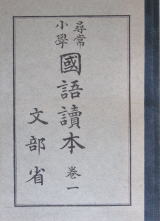 尋常小學
國語讀本 卷一
文部省